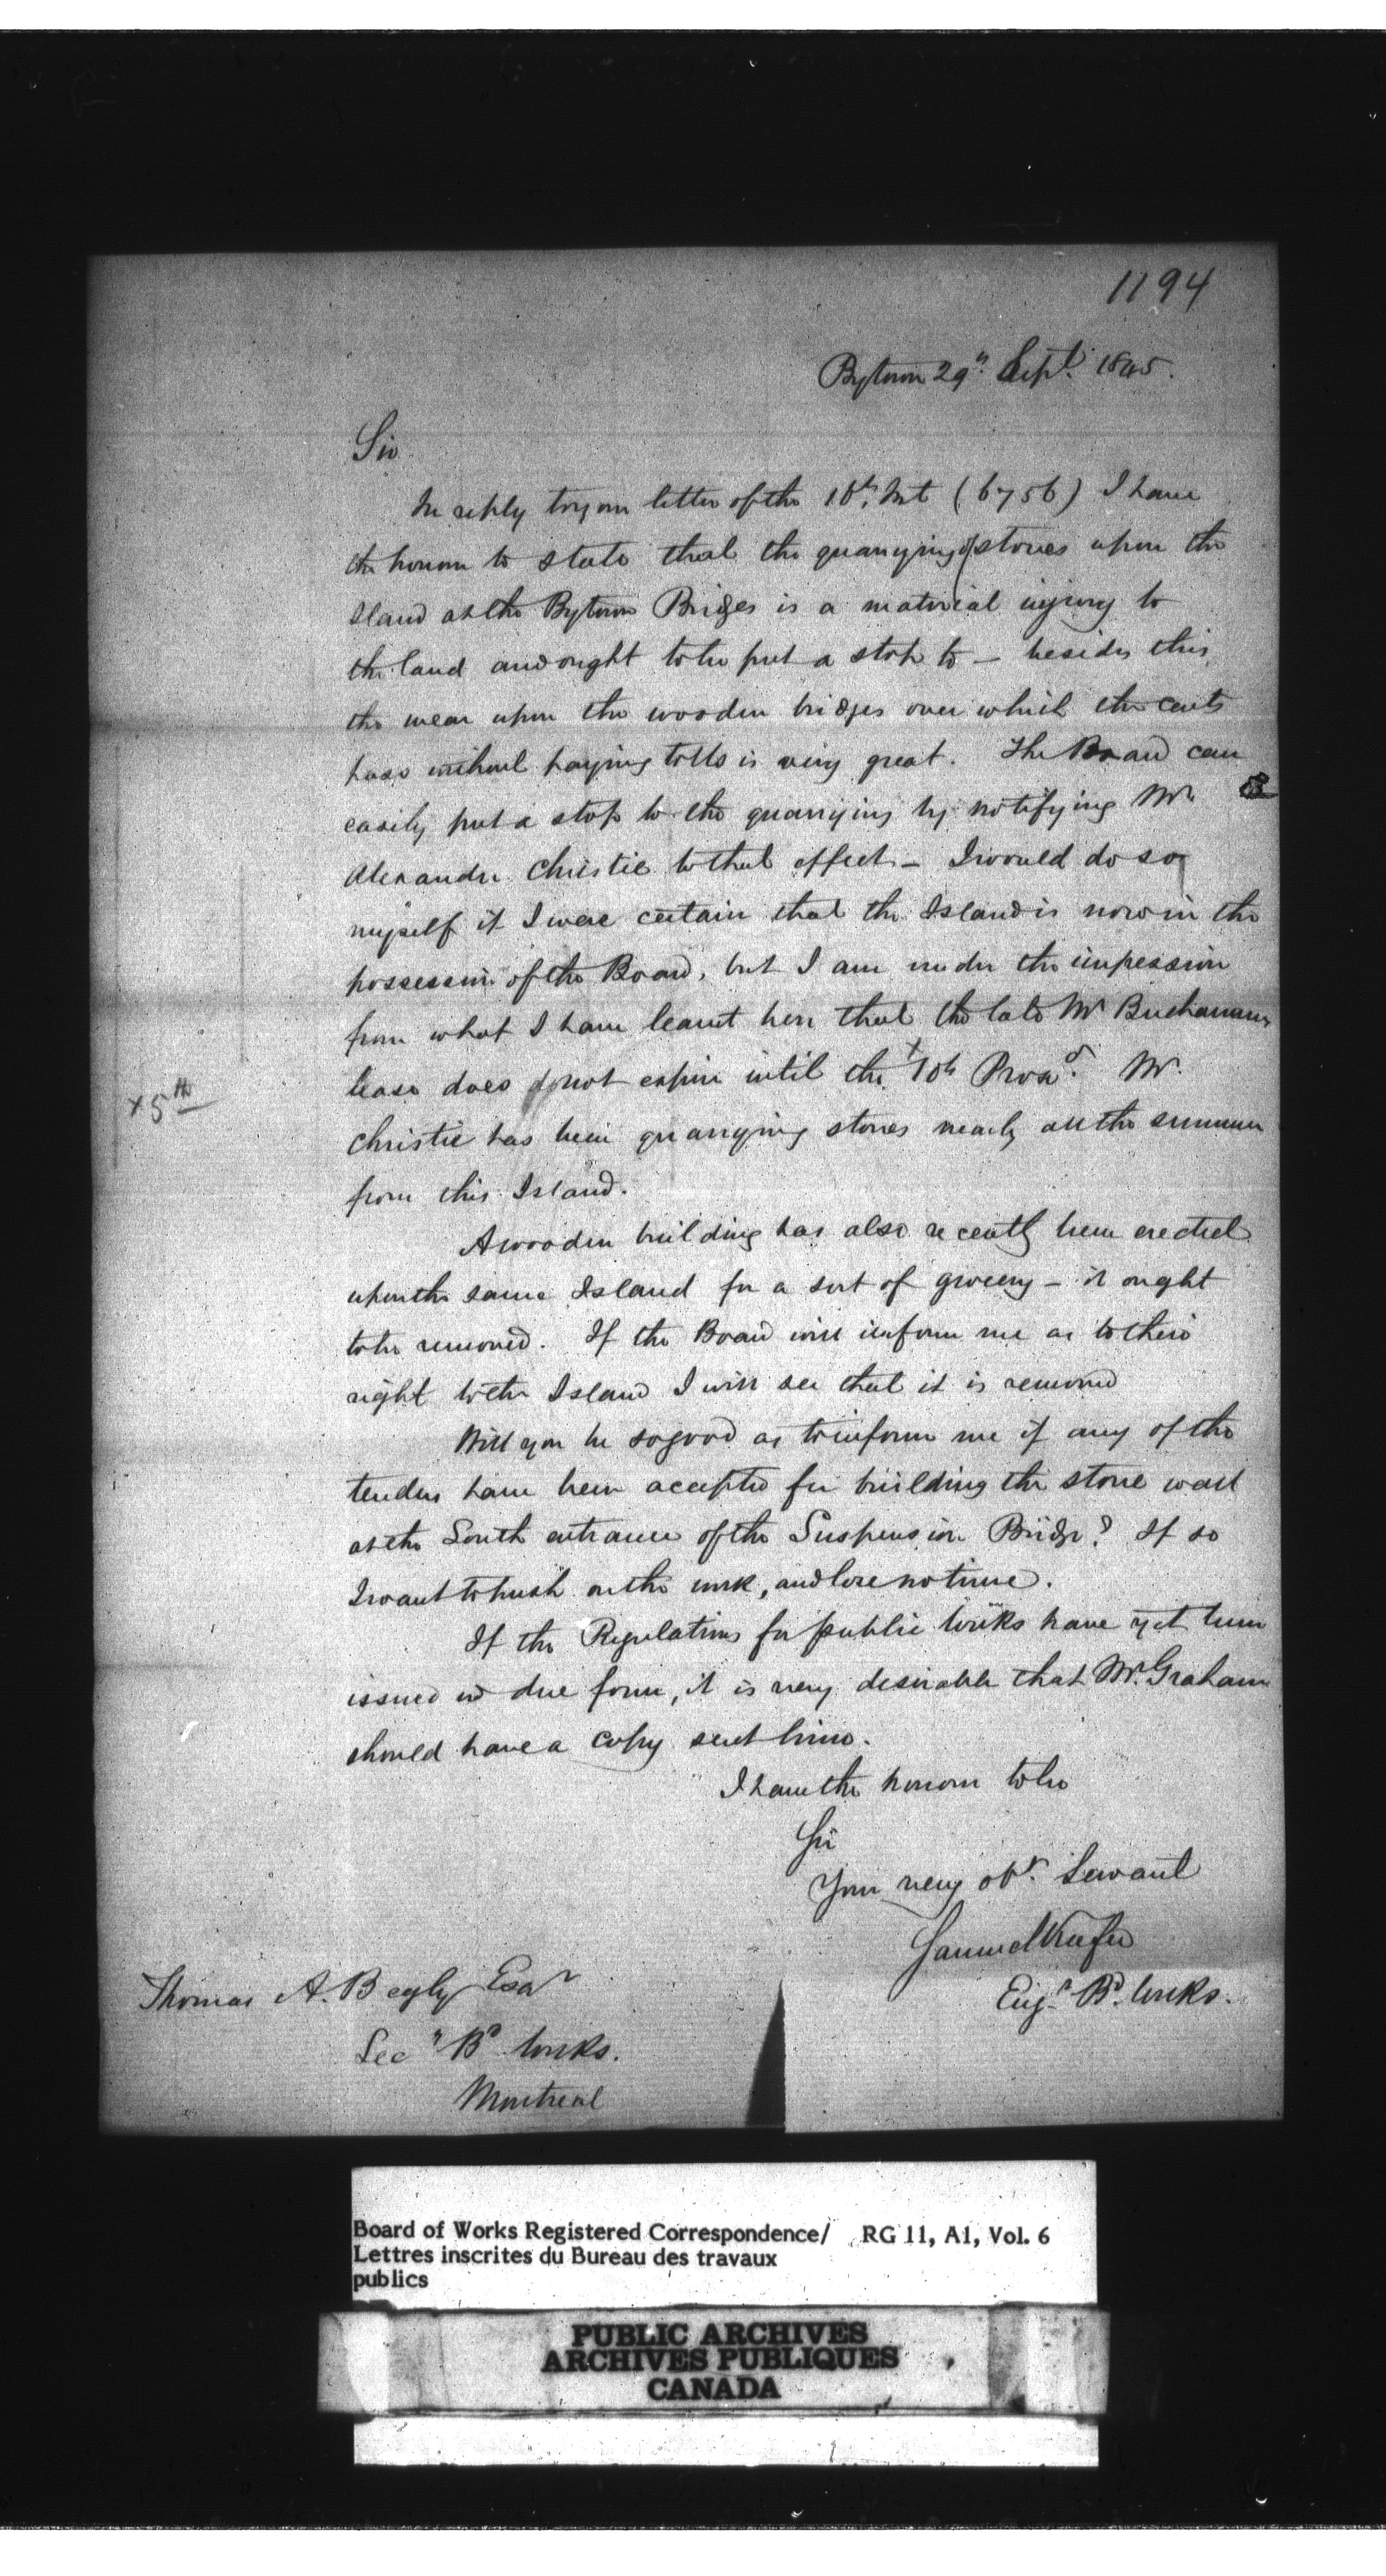 1194
Bytown 29th Sept. 1845.
Sir
In reply to your letter of the 16th Inst (6756) I have
the honor to state that the quarrying of stones upon the
Island at the Bytown Bridges is a material injury to
the land and ought to be put a stop to – besides this
the wear upon the wooden bridges over which the carts
pass without paying tolls is very great. The Board can
easily put a stop to the quarrying by notifying Mr
Alexander Christie to that effect – I would do so
myself if I were certain that the Island is now in the
possession of the Board, but I am under the impression
from what I have learnt here that the late Mr Buchanans
lease does not expire until the x 10th Proxo. Mr.
x 5th
Christie has been quarrying stones nearly all the summer
from this Island.
A wooden building has also recently been erected
upon the same Island for a sort of grocery – it ought
to be removed. If the Board will inform me as to their
right to the Island I will see that it is removed
Will you be so good as to inform me if any of the
tenders have been accepted for building the stone wall
at the South entrance of the Suspension Bridge? If so
I want to push on the work, and lose no time.
If the Regulations for public works have yet been
issued in due form, it is very desirable that Mr. Graham
should have a copy sent him.
I have the honor to be
Sir
Your very obt. Servant
Samuel Keefer
Engr. Bd. Works.
Thomas A. Begly Esqr
Secy Bd Works.
Montreal
Board of Works Registered Correspondence/ RG 11, A1, Vol. 6
Lettres inscrites du Bureau des travaux
publics
PUBLIC ARCHIVES
ARCHIVES PUBLIQUES
CANADA